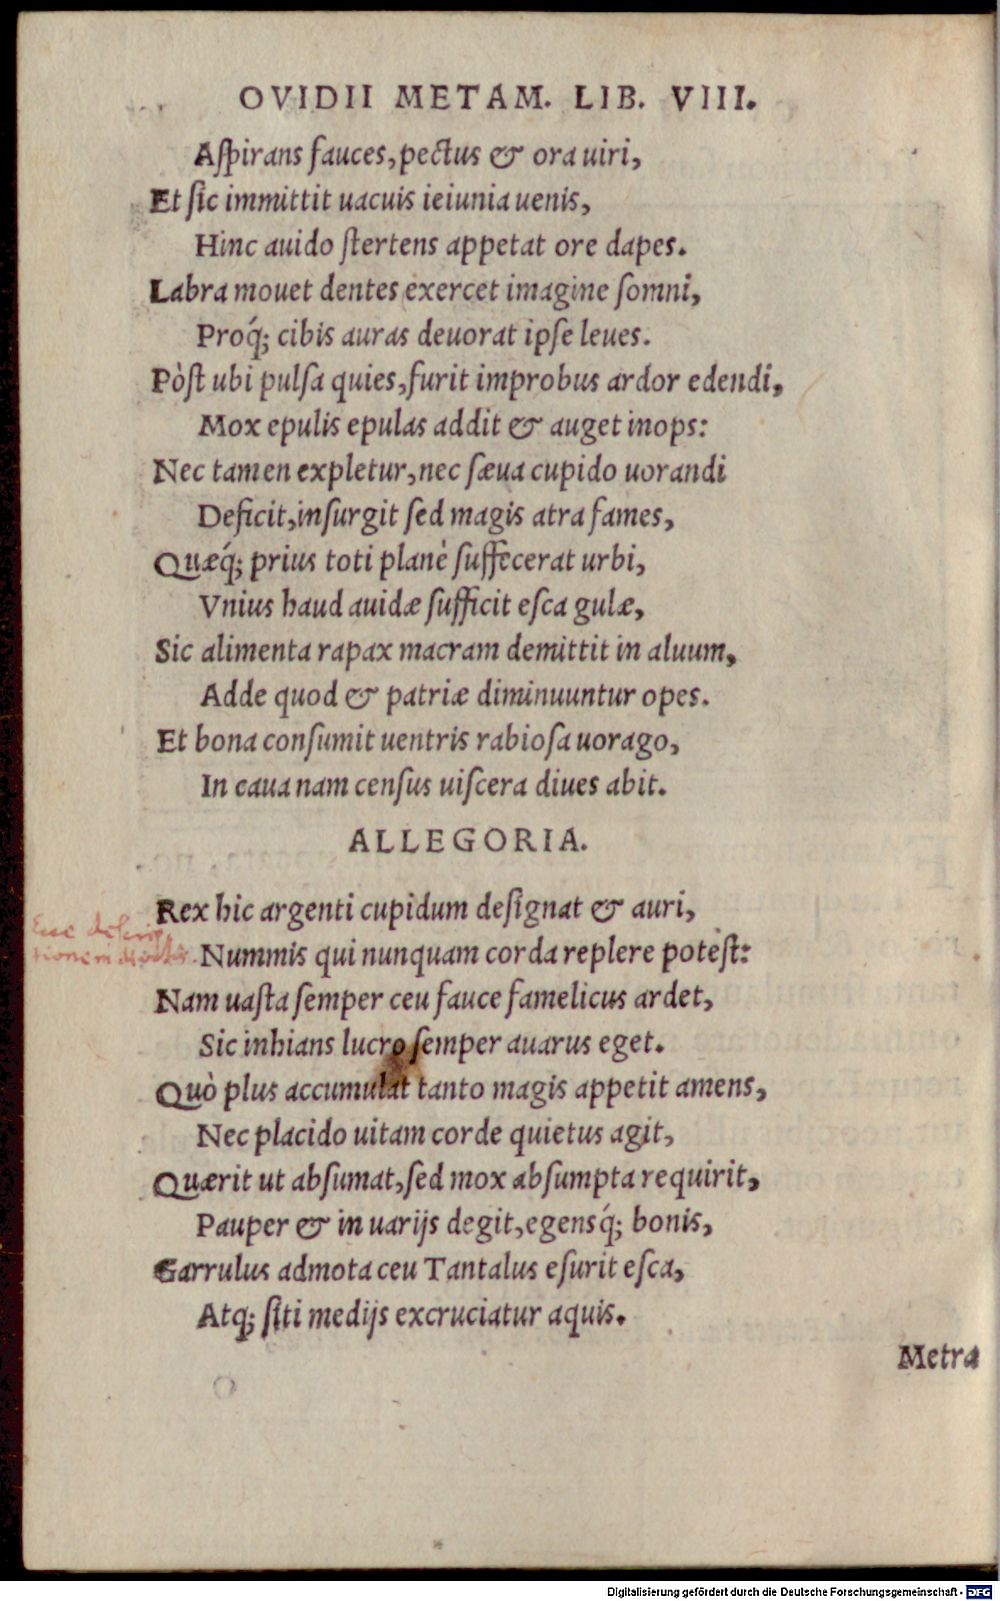 OVIDII METAM. LIB. VIII.
Aſpirans fauces, pectus & ora uiri,
Et ſic immittit uacuis ieiunia uenis,
Hinc auido ſtertens appetat ore dapes.
Labra mouet dentes exercet imagine ſomni,
Proq́; cibis auras deuorat ipſe leues.
Pòſt ubi pulſa quies, furit improbus ardor edendi,
Mox epulis epulas addit & auget inops:
Nec tamen expletur, nec ſæua cupido uorandi
Deficit, inſurgit ſed magis atra fames,
Quæq́; prius toti planè ſuffecerat urbi,
Vnius haud auidæ ſufficit eſca gulæ,
Sic alimenta rapax macram demittit in aluum,
Adde quod & patriæ diminuuntur opes.
Et bona conſumit uentris rabioſa uorago,
In caua nam cenſus uiſcera diues abit.
ALLEGORIA.
Rex hic argenti cupidum deſignat & auri,
Nummis qui nunquam corda replere poteſt:
Nam uaſta ſemper ceu fauce famelicus ardet,
Sic inhians lucro ſemper auarus eget.
Quò plus accumulat tanto magis appetit amens,
Nec placido uitam corde quietus agit,
Quærit ut abſumat, ſed mox abſumpta requirit,
Pauper & in uarijs degit, egensq́; bonis,
Garrulus admota ceu Tantalus eſurit eſca,
Atq; ſiti medijs excruciatur aquis.
Metra
Digitalisierung gefördert durch die Deutsche Forschungsgemeinschaft - DFG